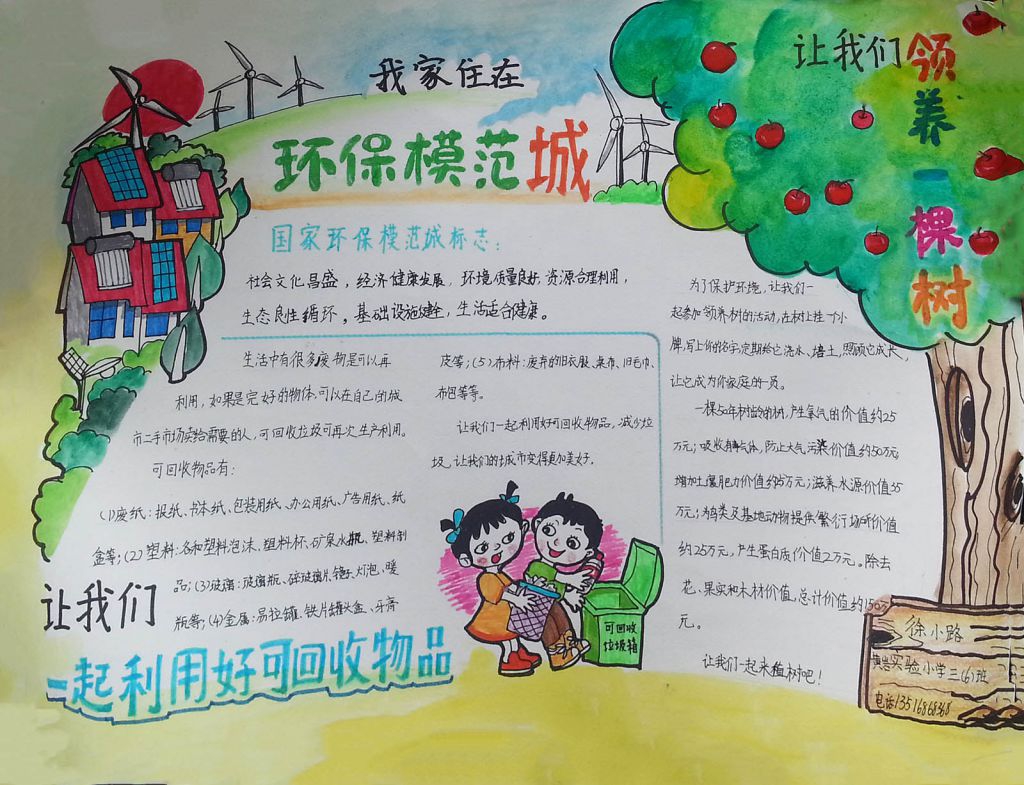 我家住在
环保模范城
国家环保模范城标志：
社会文化昌盛，经济健康发展，环境质量良好，资源合理利用，
生态良性循环，基础设施健全，生活适合健康。
生活中有很多废物是可以再
利用，如果是完好的物体可以在自己的城
市二手市场卖给需要的人，可回收垃圾可再次生产利用。
可回收物品有：
(1)废纸：报纸、书本纸、包装用纸、办公用纸、广告用纸、纸
盒等；(2)塑料：各种塑料泡沫、塑料杯、矿泉水瓶、塑料制
品；(3)玻璃：玻璃瓶、碎玻璃片、镜子、灯泡、暖
瓶等；(4)金属：易拉罐、铁片罐头盒、牙膏
皮等；(5)布料：废弃的旧衣服、桌布、旧毛巾、
布包等等。
让我们一起利用好可回收物品，减少垃
圾，让我们的城市变得更加美好。
让我们
一起利用好可回收物品
可回收
垃圾箱
让我们领养一棵树
为了保护环境，让我们一
起参加领养树的活动，在树上挂一个小
牌，写上你的名字，定期给它浇水、培土，照顾它成长，
让它成为你家庭的一员。
一棵50年树龄的树，产生氧气的价值约25
万元；吸收有毒气体，防止大气污染价值约50万元；
增加土壤肥力价值约25万元；滋养水源价值35
万元；为鸟类及其他动物提供繁衍场所价值
约25万元，产生蛋白质价值2万元。除去
花、果实和木材价值，总计价值约150万
元。
让我们一起来植树吧！
徐小路
实验小学三(6)班
电话13516868368